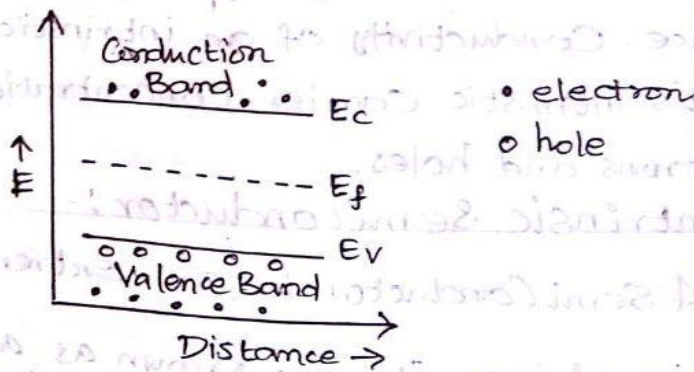 Conduction
Band
• electron
Ec
o hole
↑
E
Ef
Ev
Valence Band
Distance →